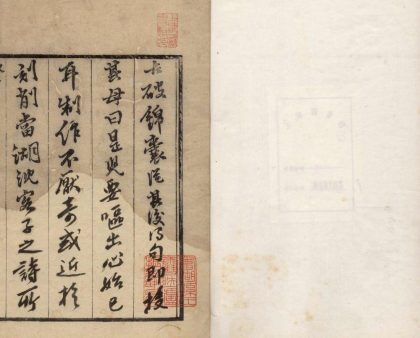 破錦囊從其後得句即投
其母曰是兒要嘔出心始已
耳制作不厭奇或近於
刻削當湖沈客子之詩所